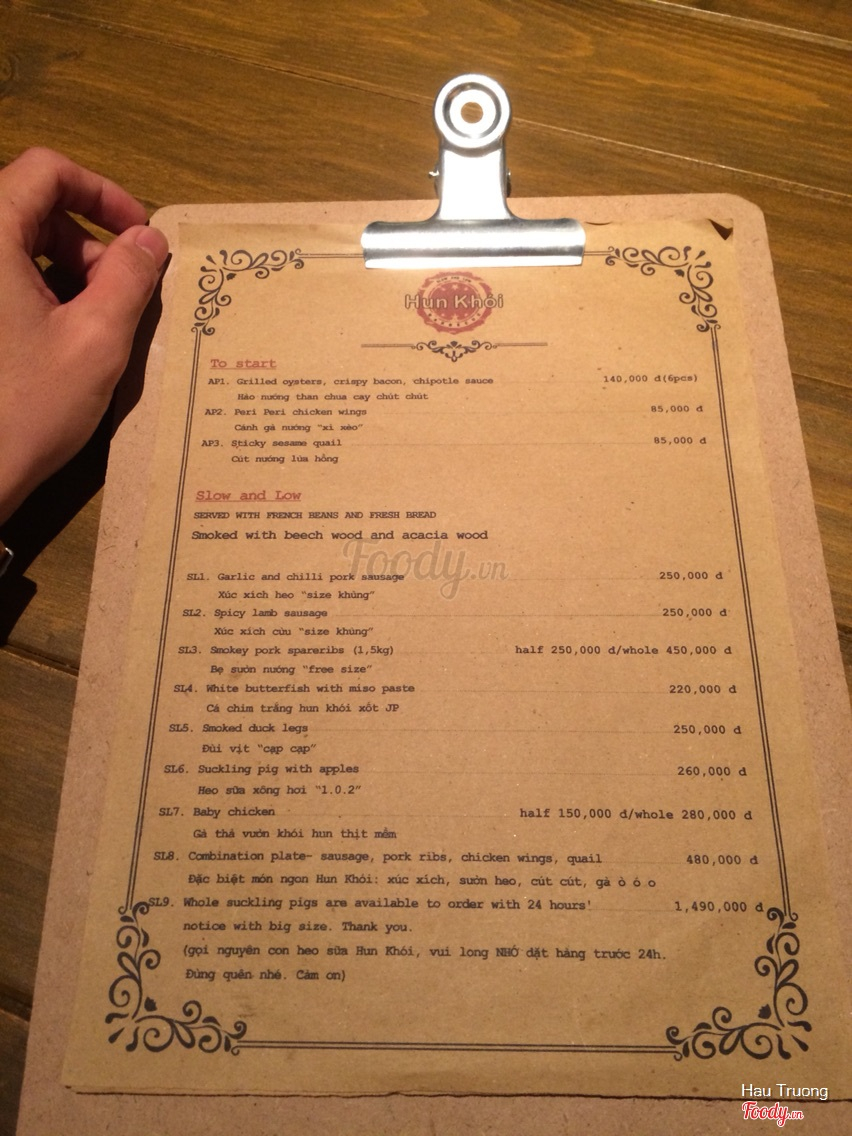 Hun Khói
To start
AP1. Grilled oysters, crispy bacon, chipotle sauce 140,000 đ(6pcs)
Hào nướng than chua cay chút chút
AP2. Peri Peri chicken wings 85,000 đ
Cánh gà nướng "xì xèo"
AP3. Sticky sesame quail 85,000 đ
Cút nướng lửa hồng
Slow and Low
SERVED WITH FRENCH BEANS AND FRESH BREAD
Smoked with beech wood and acacia wood
Foody.vn
SL1. Garlic and chilli pork sausage 250,000 đ
Xúc xích heo "size khủng"
SL2. Spicy lamb sausage 250,000 đ
Xúc xích cừu "size khủng"
SL3. Smokey pork spareribs (1,5kg) half 250,000 đ/whole 450,000 đ
Bẹ sườn nướng "free size"
SL4. White butterfish with miso paste 220,000 đ
Cá chim trắng hun khói xốt JP
SL5. Smoked duck legs 250,000 đ
Đùi vịt "cạp cạp"
SL6. Suckling pig with apples 260,000 đ
Heo sữa xông hơi "1.0.2"
SL7. Baby chicken half 150,000 đ/whole 280,000 đ
Gà thả vườn khói hun thịt mềm
SL8. Combination plate~ sausage, pork ribs, chicken wings, quail 480,000 đ
Đặc biệt món ngon Hun Khói: xúc xích, sườn heo, cút cút, gà ò ó o
SL9. Whole suckling pigs are available to order with 24 hours' 1,490,000 đ
notice with big size. Thank you.
(gọi nguyên con heo sữa Hun Khói, vui long NHỚ đặt hàng trước 24h.
Đừng quên nhé. Cảm ơn)
Hau Truong
Foody.vn